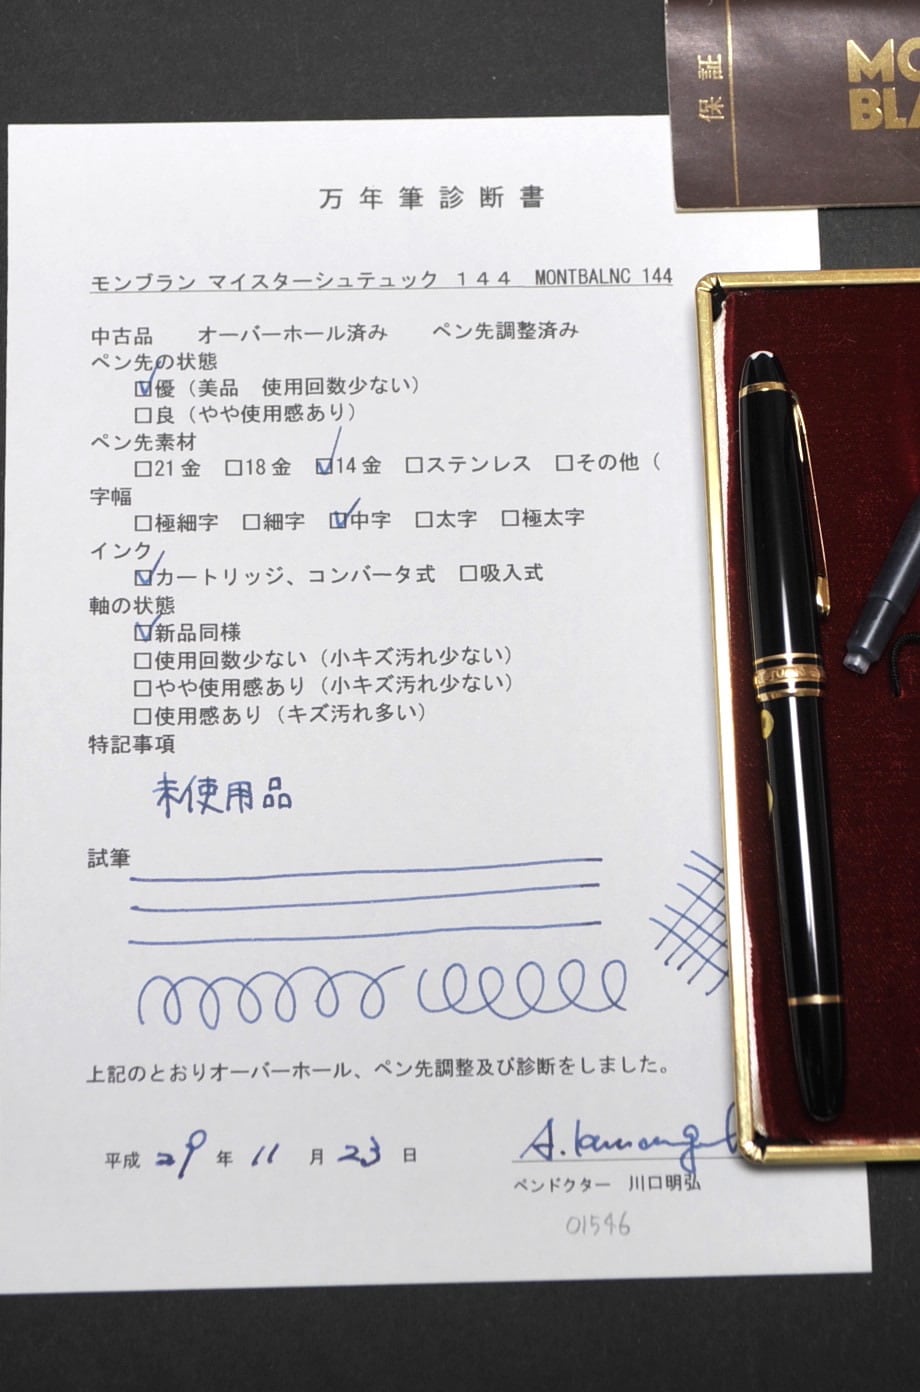 保証
MO
BLA
万年筆診断書
モンブラン マイスターシュテュック １４４ MONTBALNC 144
中古品 オーバーホール済み ペン先調整済み
ペン先の状態
☑優（美品 使用回数少ない）
□良（やや使用感あり）
ペン先素材
□21金 □18金 ☑14金 □ステンレス □その他（
字幅
□極細字 □細字 ☑中字 □太字 □極太字
インク
☑カートリッジ、コンバータ式 □吸入式
軸の状態
☑新品同様
□使用回数少ない（小キズ汚れ少ない）
□やや使用感あり（小キズ汚れ少ない）
□使用感あり（キズ汚れ多い）
特記事項
未使用品
試筆
上記のとおりオーバーホール、ペン先調整及び診断をしました。
平成 29 年 11 月 23 日
ペンドクター 川口明弘
01546